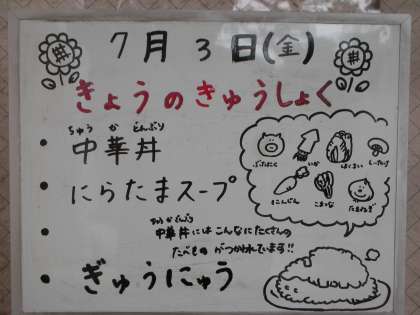 7月3日(金)
きょうのきゅうしょく
ちゅうかどんぶり
・中華丼
・にらたまスープ
ちゅうかどんぶり
中華丼にはこんなにたくさんの
たべものがつかわれています!!
・ぎゅうにゅう
ぶたにく いか はくさい しいたけ
にんじん こまつな たまねぎ